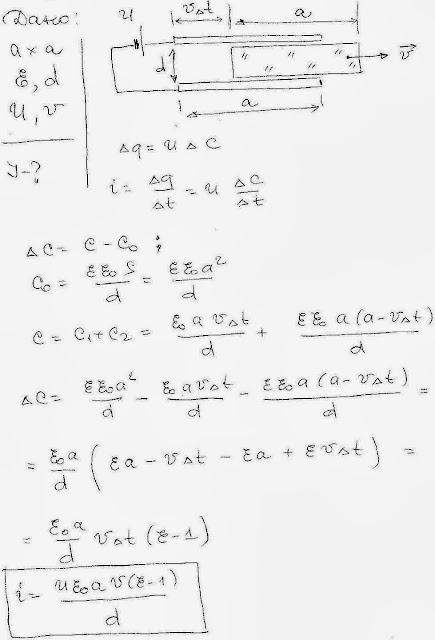 Дано:
a × a
ε, d
u, v
J-?
u
d
vΔt
a
v⃗
a
Δq = u Δ C
i = Δq/Δt = u ΔC/Δt
ΔC = C - C₀ ;
C₀ = εε₀S/d = εε₀a²/d
C = C₁ + C₂ = ε₀ a vΔt/d + εε₀ a (a - vΔt)/d
ΔC = εε₀a²/d - ε₀ a vΔt/d - εε₀ a (a - vΔt)/d =
= ε₀a/d ( εa - vΔt - εa + εvΔt ) =
= ε₀a/d vΔt (ε - 1)
i = uε₀ a v(ε-1)/d